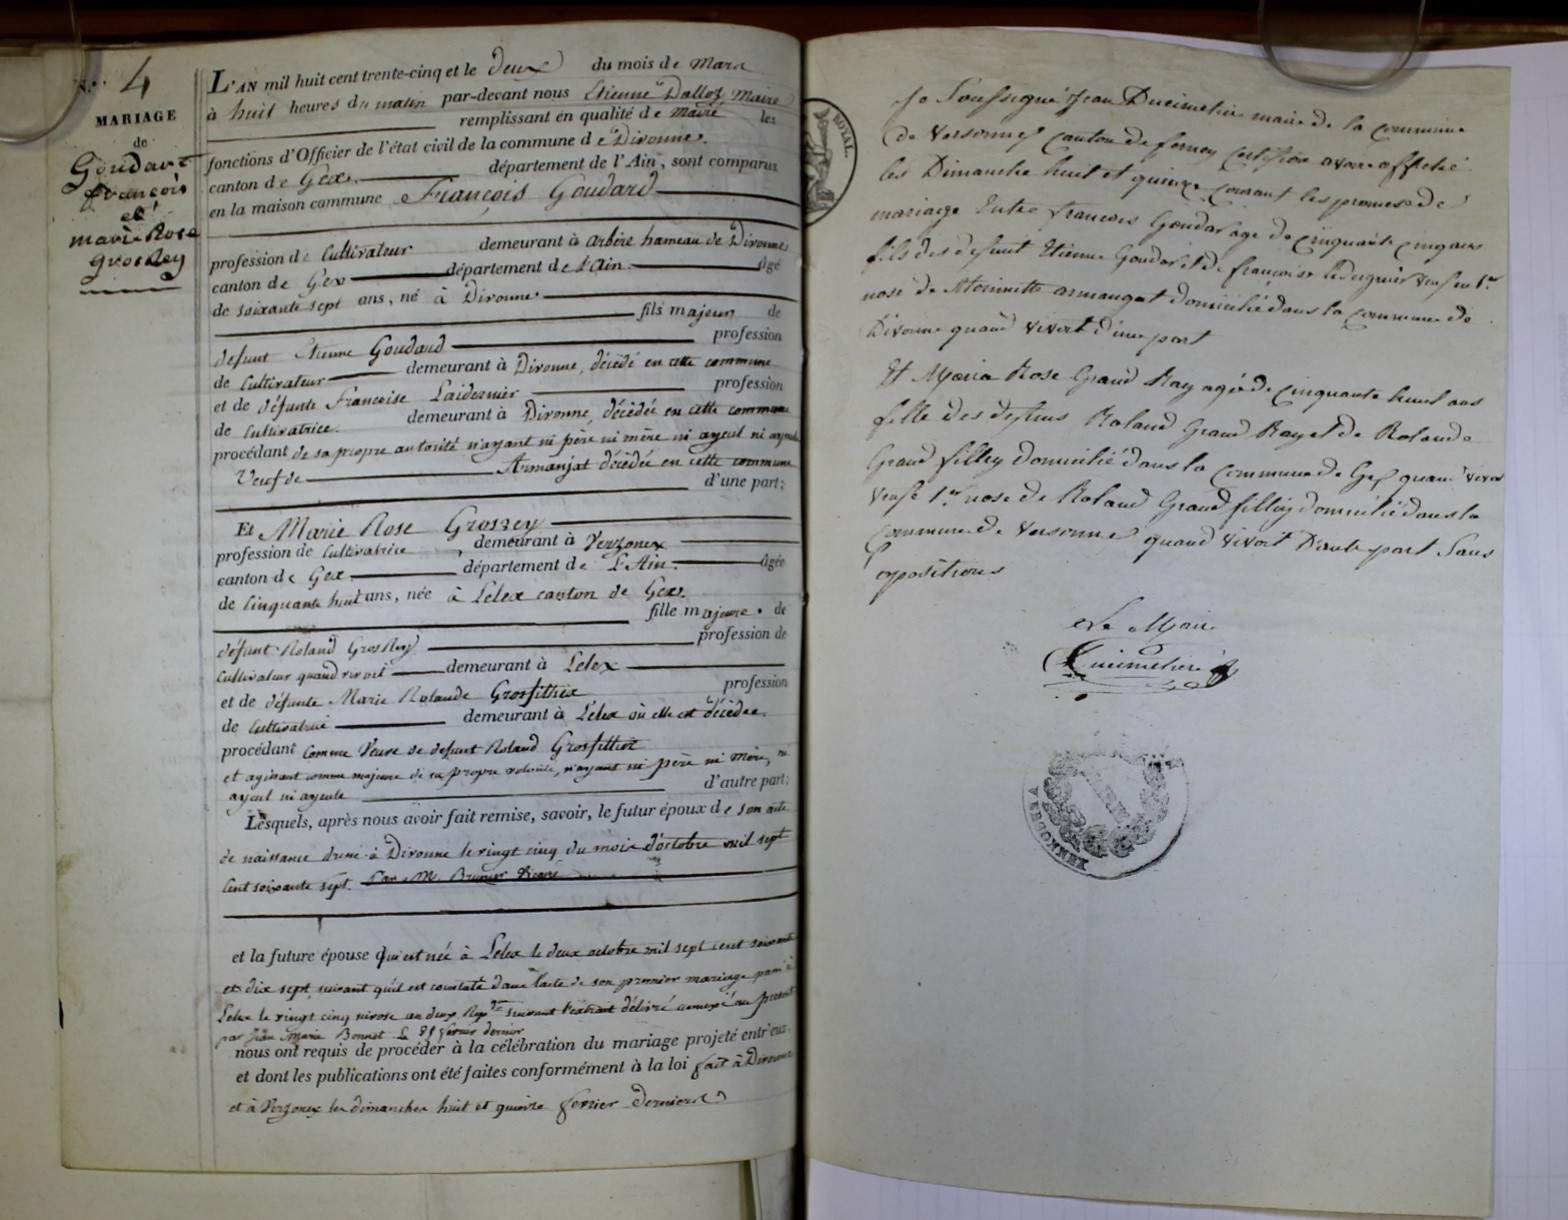 N.º 4
MARIAGE
de
Goudard
François
et
marie Rose
grosRey
L'AN mil huit cent trente-cinq et le deux du mois de Mars
à huit heures du matin par-devant nous Etienne Dalloz, Maire
remplissant en qualité de Maire les
fonctions d'Officier de l'état civil de la commune de Divonne,
canton de Gex. département de l'Ain, sont comparus
en la maison commune François Goudard
profession de Cultivateur demeurant à arbère hameau de Divonne
canton de Gex département de l'Ain. âgé
de soixante sept ans, né à Divonne.
fils majeur de
défunt Etienne Goudard profession
de Cultivateur demeurant à Divonne, décédé en cette commune
et de défunte Françoise Laidernier profession
de Cultivatrice. demeurant à Divonne, décédée en cette commune
procédant de sa propre autorité n'ayant ni père ni mère ni ayeul ni ayeule
Veuf de Armanjat décédée en cette commune
d'une part;
Et Marie Rose Grosrey
profession de Cultivatrice, demeurant à Verzonex
canton de Gex département de L'Ain. âgée
de Cinquante huit ans, née à Lelex canton de Gex.
fille majeure. de
défunt Roland GrosRey profession de
Cultivateur quand vivoit demeurant à Lelex
et de défunte Marie Rolande Grosfillier profession
de Cultivatrice demeurant à Lelex où elle est décédée.
procédant Comme Veuve de defunt Roland Grosfillier
et agissant comme majeure de sa propre volonté, n'ayant ni père ni mère, ni
ayeul ni ayeule d'autre part;
Lesquels, après nous avoir fait remise, savoir, le futur époux de son acte
de naissance dressé à Divonne le vingt cinq du mois d'octobre mil sept
Cent soixante sept. Par M. Vicaire
et la future épouse qui est née à Lelex le deux octobre mil sept cent soixante
et dix sept, suivant qu'il est constaté dans l'acte de son premier mariage passé à
Lelex le vingt cinq nivose an deux Rep.ne suivant l'extrait délivré annexé au présent
par Jean Marie Bonnet Le 21 février dernier
nous ont requis de procéder à la célébration du mariage projeté entr'eux,
et dont les publications ont été faites conformément à la loi fait à Divonne
et à Verzonex les dimanches huit et quinze février derniers
ROYAL.
Je Soussigné Jean Ducimetière maire de la Commune
de Versonnex Canton de ferney Certifion avoir affiché
les Dimanche huit et quinze Courant les promesse de
mariage Entre francois Goudar age de Cinquante Cinq ans
fils des defunt Etienne Goudar et de françoise veuf en 1er
nose de armanget domicilié dans la Commune de
Divonne quand vivoit d'une part
Et Maria Rose Grand Ray agée de Cinquante huit ans
fille des defuns Roland Grand Ray et de Rolande
Grand filley domicilié dans la Commune de Gex quand vivoit
veuse 1er nose de Roland Grand filley domicilié dans la
Commune de Versonnex quand vivoit D'autre part Sans
oppositions
Le Maire
Ducimetière
MAIRIE
VERSONNEX